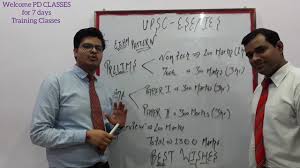 Welcome PD CLASSES
for 7 days
Training Classes
UPSC-ESE/IES
EXAM PATTERN
PRELIMS
Non Tech → 200 Marks
Tech → 300 Marks (3hr)
PAPER I → 300 Marks (3hr)
PAPER II → 300 Marks (3hr)
→ 200 Marks
Total →
BEST WISHES